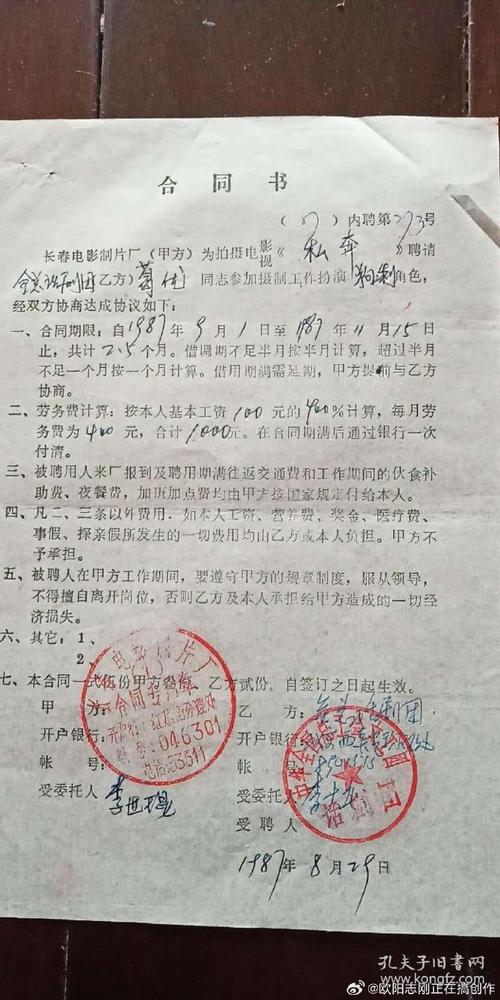 合同书
(87)内聘第273号
长春电影制片厂(甲方)为拍摄电影视《私奔》聘请
全总话剧团(乙方)葛优同志参加摄制工作扮演 角色,
经双方协商达成协议如下:
一、合同期限:自1987年9月1日至1987年11月15日
止,共计2.5个月。借调期不足半月按半月计算,超过半月
不足一个月按一个月计算。借用期满需延期,甲方提前与乙方
协商。
二、劳务费计算:按本人基本工资100元的400%计算,每月劳
务费为400元,合计1000元。在合同期满后通过银行一次
付清。
三、被聘用人来厂报到及聘用期满往返交通费和工作期间的伙食补
助费、夜餐费,加班加点费均由甲方按国家规定付给本人。
四、凡二、三条以外费用.如本人工资、营养费、奖金、医疗费、
事假、探亲假所发生的一切费用均由乙方或本人负担。甲方不
予承担。
五、被聘人在甲方工作期间,要遵守甲方的规章制度,服从领导,
不得擅自离开岗位,否则乙方及本人承担给甲方造成的一切经
济损失。
六、其它:1、
2、
七、本合同一式伍份甲方叁份,乙方贰份。自签订之日起生效。
甲方:
乙方:全总话剧团
开户银行:
开户银行:
帐号:
帐号:
受委托人
受委托人
受聘人
1987年8月29日
电影制片厂
合同专用章
开户行:红旗街办理处
帐号:046301
电话:53311
话剧团
孔夫子旧书网
www.kongfz.com
@欧阳志刚正在搞创作